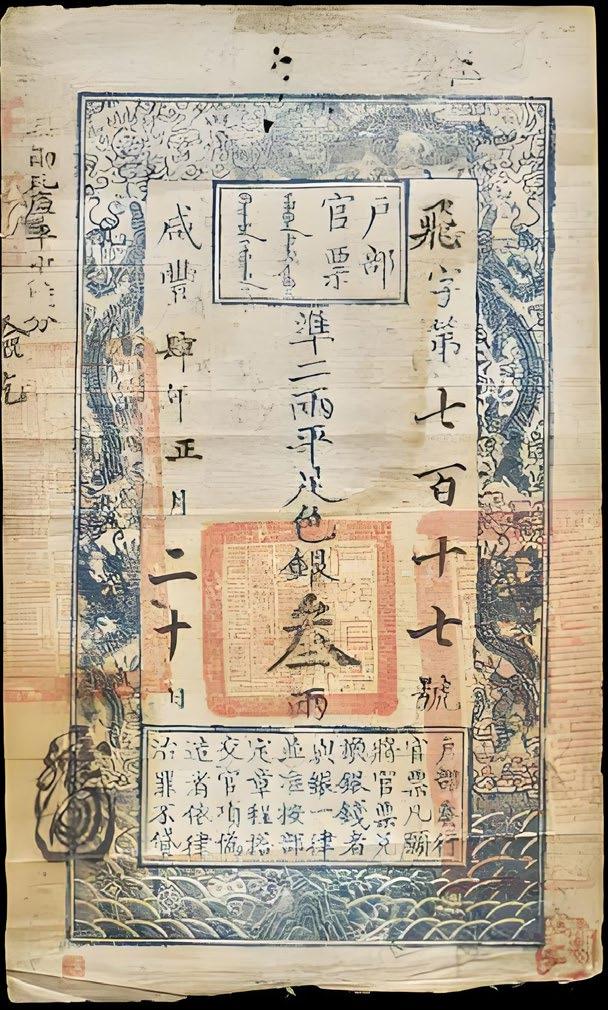 飛字第七百十七號
戶部
官票
準二兩平足色銀叁兩
咸豐肆年正月二十日
戶部奏行
官票凡願
將官票兌
換銀錢者
與銀一律
並准按部
定章程搭
交官項偽
造者依律
治罪不貸